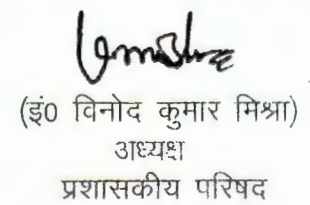 (इं0 विनोद कुमार मिश्रा)
अध्यक्ष
प्रशासकीय परिषद